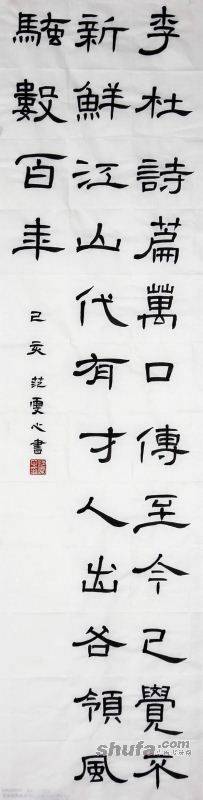 李杜詩篇萬口傳至今已覺不
新鮮江山代有才人出各領風
騷數百年
己亥 范雯心書
shufa.com